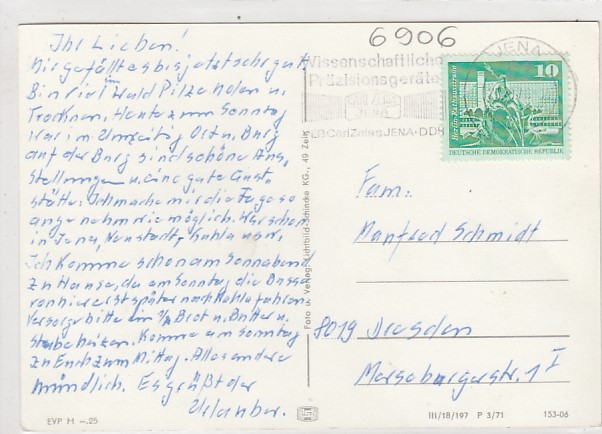 Ihr Lieben!
Mir gefällt es bis jetzt sehr gut.
Bin viel im Wald Pilze holen u.
trocknen. Heute zum Sonntag
war ich u. Burg
auf der Burg sind schöne Aus
stellungen u. eine gute Gast
stätte. Ich mache mir die Tage so
angenehm wie möglich. War schon
in Jena, Neustadt, Kahla usw.
Ich komme schon am Sonnabend
zu Hause, da am Sonntag die Busse
von hier erst später nach Kahla fahren.
Versorge bitte ein 1/2 Brot u. Butter u.
Stube heizen. Komme am Sonntag
zu Euch zum Mittag. Alles andere
mündlich. Es grüßt der
Urlauber.
EVP M -.25
Foto u. Verlag Lichtbild-Schincke KG., 49 Zeitz
6906
JENA
Wissenschaftliche
Präzisionsgeräte
CARL ZEISS
JENA
VEB Carl Zeiss JENA · DDR
10
Berlin, Rathausstraße
DEUTSCHE DEMOKRATISCHE REPUBLIK
Fam:
Manfred Schmidt
8019 Dresden
Merseburgerstr. 1 I
III/18/197 P 3/71 153-06